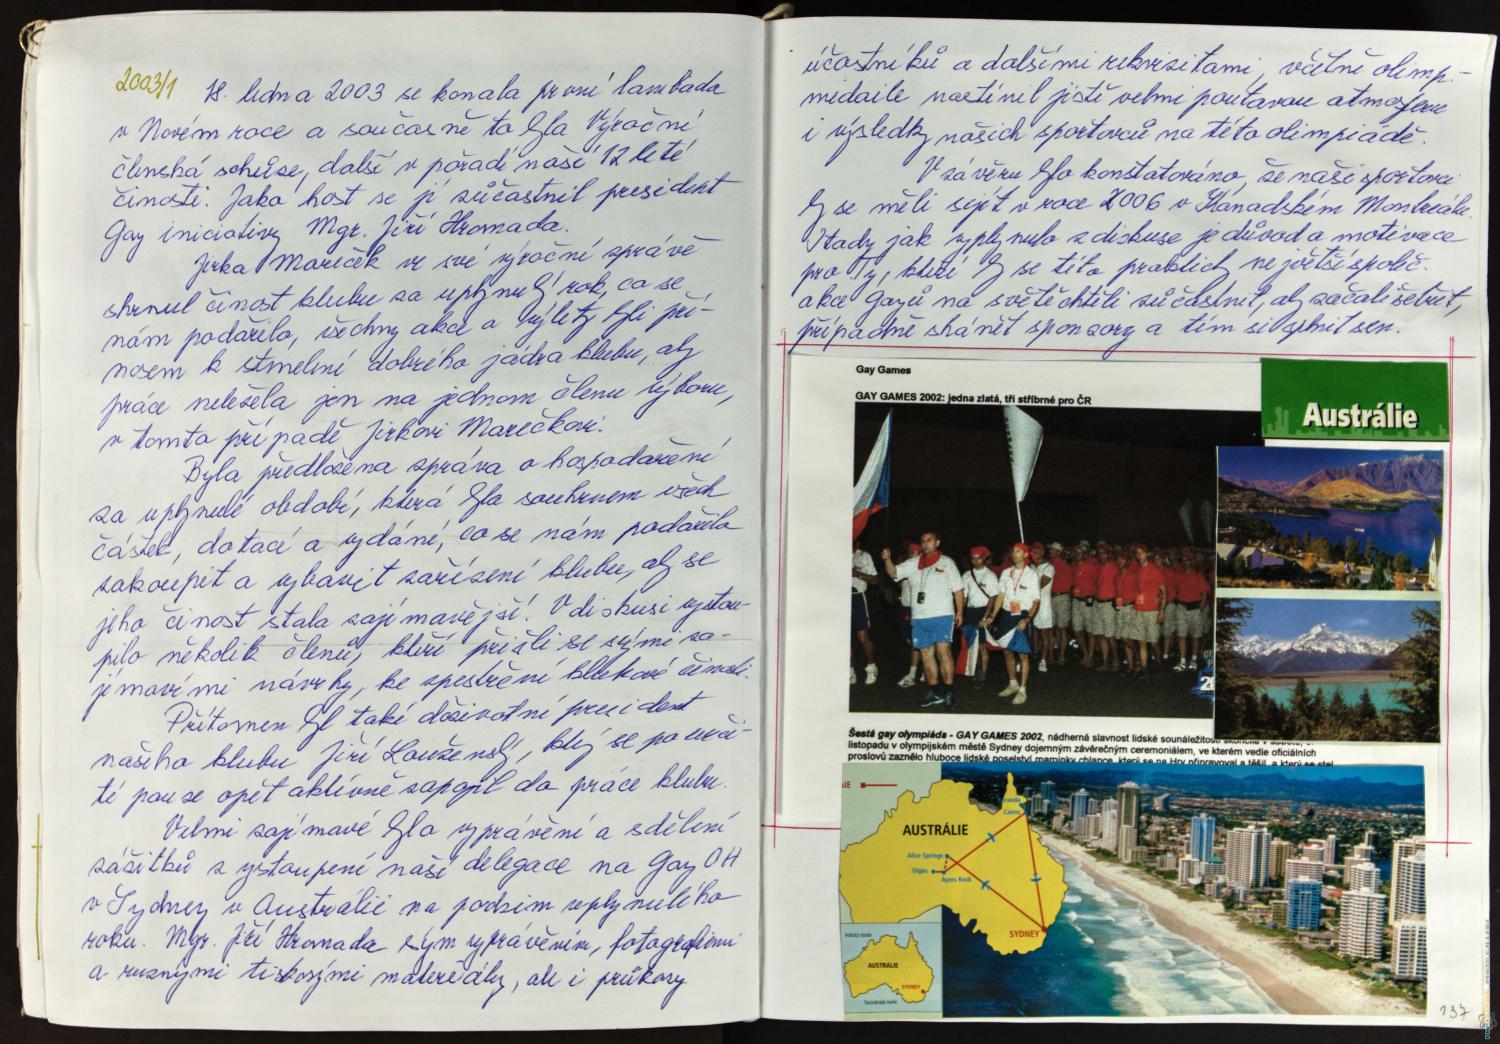 2003/1
18. ledna 2003 se konala první lambada
v Novém roce a současně to byla Výroční
členská schůze, další v pořadí naší 12 leté
činosti. Jako host se jí zúčastnil president
Gay iniciativy Mgr. Jiří Hromada.
Jirka Mareček ve své výroční zprávě
shrnul činost klubu za uplynulý rok, co se
nám podařilo, všechny akce a výlety byli pří-
nosem k stmelení dobrého jádra klubu, aby
práce neležela jen na jednom členu výboru,
v tomto případě Jirkovi Marečkovi.
Byla předložena zpráva o hospodaření
za uplynulé období, která byla souhrnem všech
částek, dotací a vydání, co se nám podařilo
zakoupit a vybavit zařízení klubu, aby se
jeho činost stala zajímavější. V diskusi vystou-
pilo několik členů, kteří přišli se svými za-
jímavími návrhy, ke spestření klubové činosti.
Přítomen byl také doživotní president
našeho klubu Jiří Louženský, který se po urči-
té pause opět aktívně zapojil do práce klubu.
Velmi zajímavé bylo vyprávění a sdělení
zážitků z vystoupení naší delegace na Gay OH
v Sydney v Austrálii na podzim uplynulého
roku. Mgr. Jiří Hromada svým vyprávěním, fotografiemi
a ruznými tiskovými materiály, ale i průkazy
účastníků a dalšími rekvizitami, včetně olimp.-
medaile nastínil jistě velmi poutavou atmosferu
i výsledky našich sportovců na této olimpiádě.
V závěru bylo konstatováno, že naši sportovci
by se měli sejít v roce 2006 v Kanadském Montreálu.
Vtady jak vyplynulo z diskuse je důvod a motivace
pro ty, kteří by se této praktich největší společ.
akce gayů na světě chtěli zúčastnit, aby začali šetřit,
případně shánět sponzory a tím si splnit sen.
Gay Games
GAY GAMES 2002: jedna zlatá, tři stříbrné pro ČR
Austrálie
Šestá gay olympiáda - GAY GAMES 2002, nádherná slavnost lidské sounáležitosti skončila v sobotu
listopadu v olympijském městě Sydney dojemným závěrečným ceremoniálem, ve kterém vedle oficiálních
proslovů zaznělo hluboce lidské poselství maminky chlapce, který se na Hry připravoval a těšil, a který se stal
AUSTRÁLIE
Cairns
Alice Springs
Olgas
Ayers Rock
SYDNEY
Indický oceán
AUSTRÁLIE
SYDNEY
Tasmánské moře
137